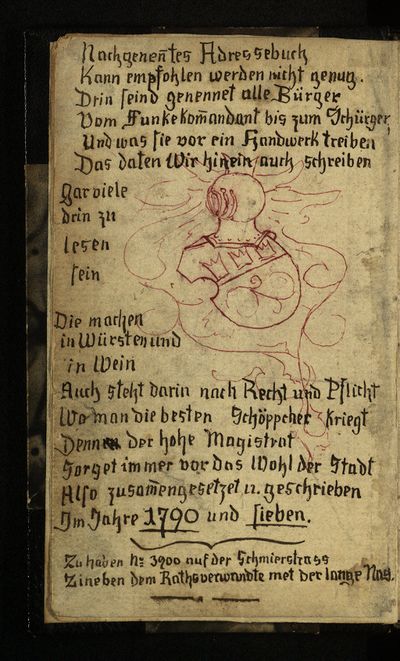 Nachgenen̄tes Adressebuch
Kann empfohlen werden nicht genug.
Drin seind genennet alle Bürger
Vom Funkekom̄andant bis zum Schürger,
Und was sie vor ein Handwerk treiben
Das daten Wir hinein auch schreiben
Gar viele
drin zu
lesen
sein
Die machen
in Würsten und
in Wein
Auch steht darin nach Recht und Pflicht
Wo man die besten Schöppcher kriegt
Denn der hohe Magistrat
Sorget immer vor das Wohl der Stadt
Also zusam̄engesetzet u. geschrieben
Im Jahre 1790 und sieben.
Zu haben No 3900 auf der Schmierstrass
Zineben dem Rathsverwandte met der lange Nas.